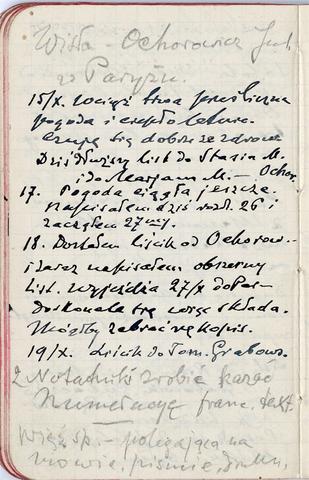 Wisła - Ochorowicz Jul.
w Paryżu.
15/X. wciąż trwa prześliczna
pogoda i ciepło letnie.
czuję się dobrze ze zdrowie
Dziś dłuższy list do Stasia M.
i do Marjana M. - Ochor.
17. Pogoda ciągła jeszcze.
napisałem dziś rozdz. 26 i
zacząłem 27my.
18. Dostałem liścik od Ochorow.-
i zaraz napisałem obszerny
list. wyjeżdża 27/X do Par-
doskonale się więc składa.
Mógłby zabrać rękopis.
19/X. Liścik do Tom. Grabows.
2 Notatniki zrobić kazać
Numerację franc. text.
Więź sp. - polegająca na
mowie, piśmie, druku,